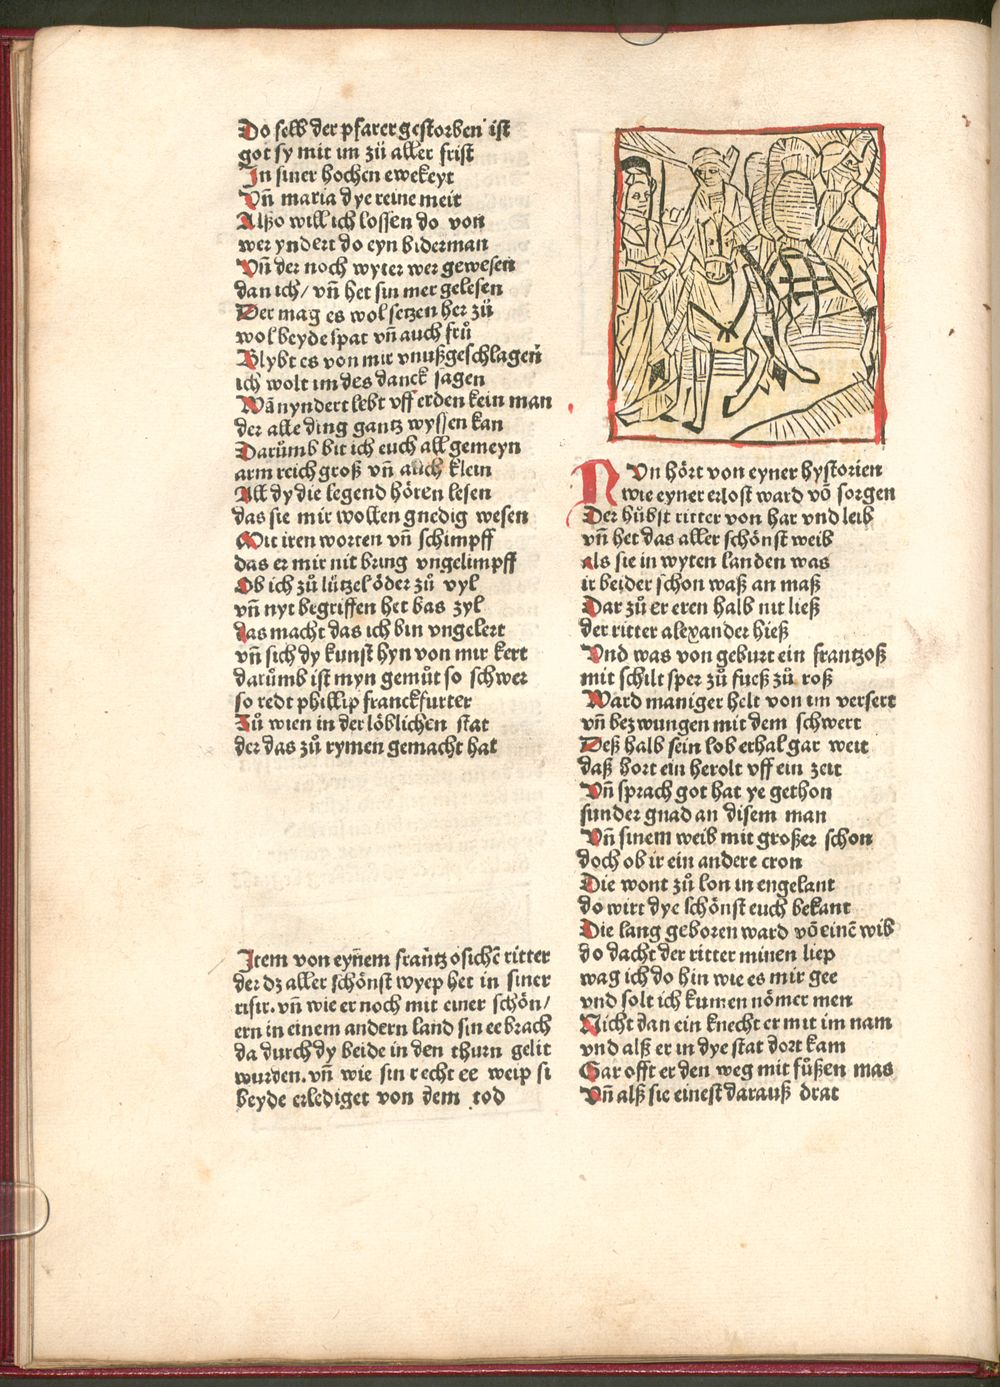 Do selb der pfarer gestorben ist
got sy mit im zů aller frist
In siner hochen ewekeyt
Vñ maria dye reine meit
Alßo will ich lossen do von
wer yndert do eyn biderman
Vñ der noch wyter wer gewesen
dan ich/ vñ het sin mer gelesen
Der mag es wol setzen her zů
wol beyde spat vñ auch frů
Blybt es von mir vnußgeschlagen
ich wolt im des danck sagen
Wã nyndert lebt vff erden kein man
der alle ding gantz wyssen kan
Darůmb bit ich euch all gemeyn
arm reich groß vñ auch klein
All dy die legend hören lesen
das sie mir wollen gnedig wesen
Mit iren worten vñ schimpff
das er mir nit bring vngelimpff
Ob ich zů lützel öder zů vyl
vñ nyt begriffen het bas zyl
das macht das ich bin vngelert
vñ sich dy kunst hyn von mir kert
darůmb ist myn gemůt so schwer
so redt phillip franckfurter
Zů wien in der löblichen stat
der das zů rymen gemacht hat
Item von eyñem frañtzösichẽ ritter
der dz aller schönst wyep het in siner
risir. vñ wie er noch mit einer schön/
ern in einem andern land sin ee brach
da durch dy beide in den thurn gelit
wurden. vñ wie sin recht ee weip si
beyde erlediget von dem tod
NVn hört von eyner hystorien
wie eyner erlost ward võ sorgen
Der hůbst ritter von har vnd leib
vñ het das aller schönst weib
als sie in wyten landen was
ir beider schon waß an maß
Dar zů er eren halb nit ließ
der ritter alexander hieß
Vnd was von geburt ein frantzoß
mit schilt sper zů fueß zů roß
Ward maniger helt von im versert
vñ bezwungen mit dem schwert
Deß halb sein lob erhal gar weit
daß hort ein herolt vff ein zeit
Vñ sprach got hat ye gethon
sunder gnad an disem man
Vñ sinem weib mit großer schon
doch ob ir ein andere cron
Die wont zů lon in engelant
do wirt dye schönst euch bekant
Die lang geboren ward võ einẽ wib
do dacht der ritter minen liep
wag ich do hin wie es mir gee
vnd solt ich kumen nömer men
Nicht dan ein knecht er mit im nam
vnd alß er in dye stat dort kam
Gar offt er den weg mit fůßen mas
Vñ alß sie einest darauß drat